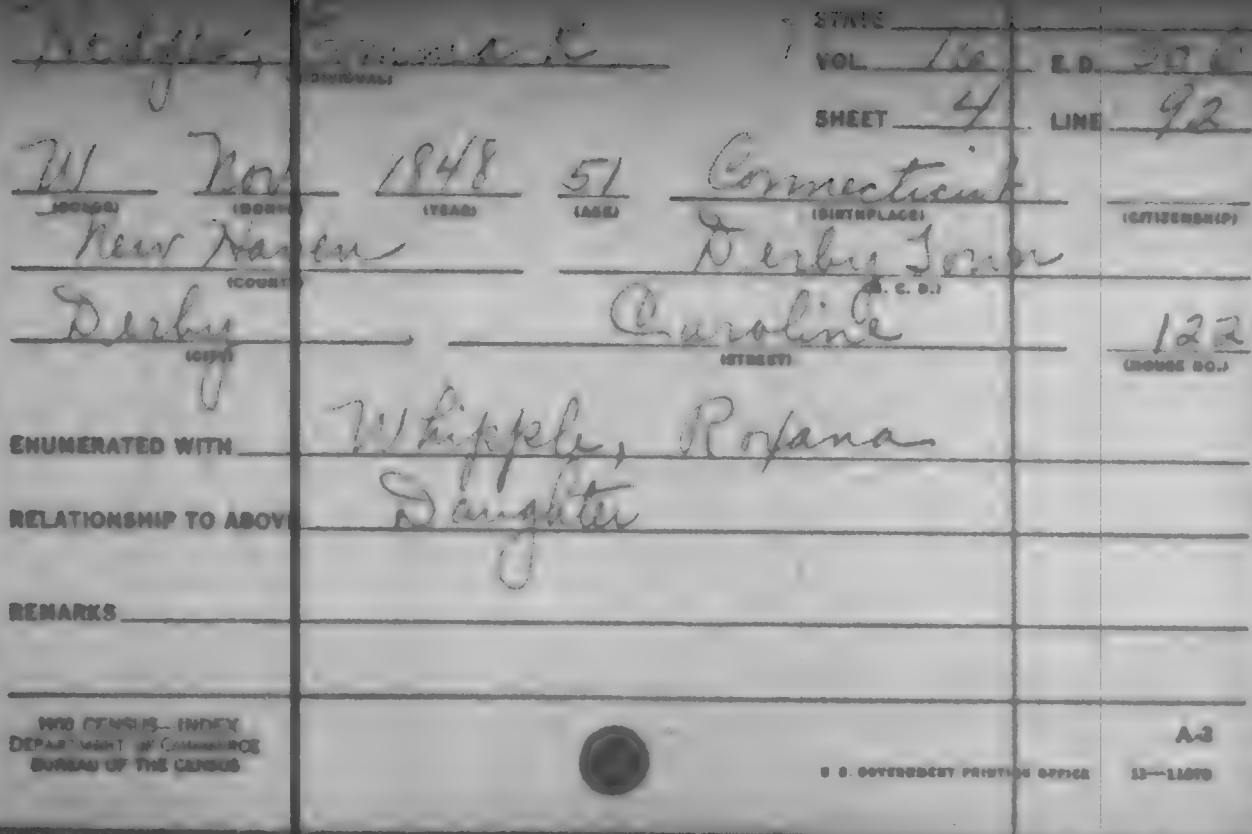 STATE
Emma
(INDIVIDUAL)
VOL. E. D.
SHEET 4 LINE 92
W Nov 1848 51 Connecticut
(COLOR) (MONTH) (YEAR) (AGE) (BIRTHPLACE) (CITIZENSHIP)
New Haven Derby Town
(COUNTY) (M. C. D.)
Derby Caroline 122
(CITY) (STREET) (HOUSE NO.)
ENUMERATED WITH Whipple, Roxana
RELATIONSHIP TO ABOVE Daughter
REMARKS
1900 CENSUS—INDEX
DEPARTMENT OF COMMERCE A-2
BUREAU OF THE CENSUS U. S. GOVERNMENT PRINTING OFFICE